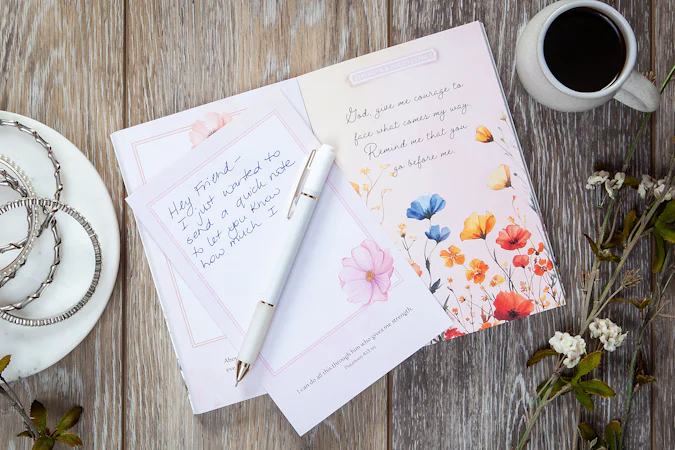 Hey Friend -
I just wanted to
send a quick note
to let you know
how much I
God, give me courage to
face what comes my way.
Remind me that you
go before me.
I can do all this through him who gives me strength.